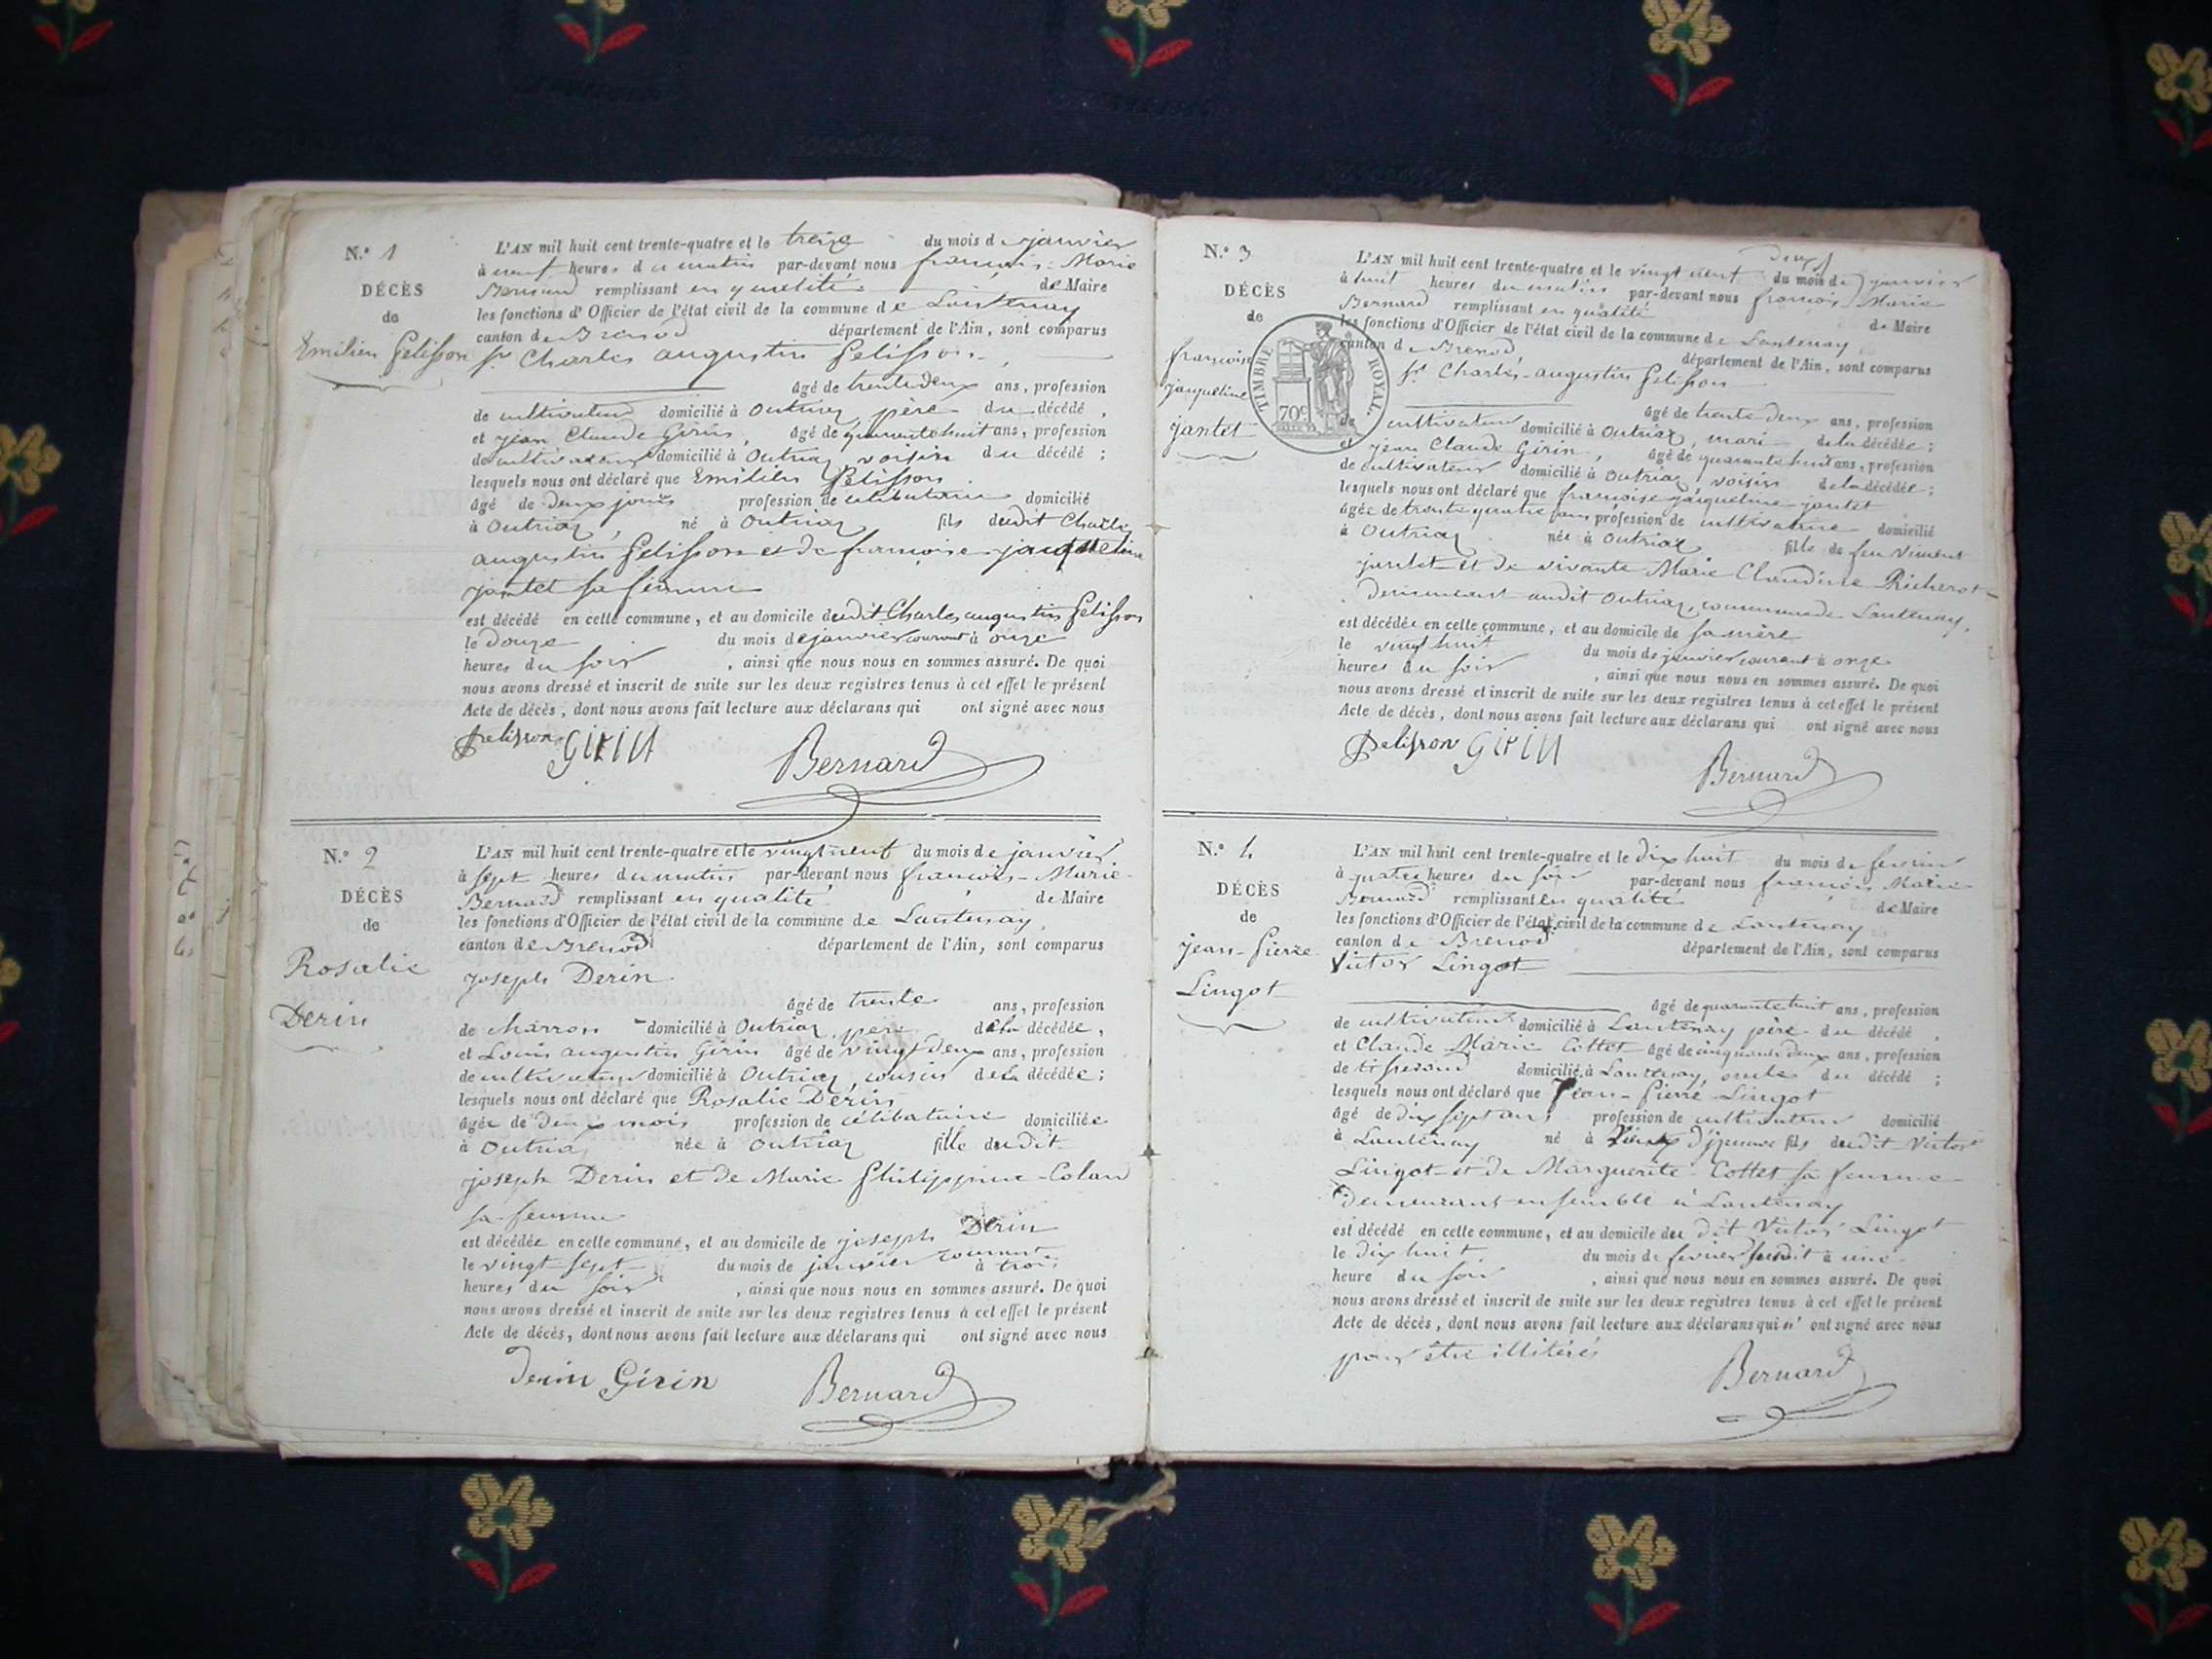 N.° 1
DÉCÈS
de
Emilien Pelisson
L'AN mil huit cent trente-quatre et le treize du mois de janvier
à neuf heures du matin par-devant nous françois-Marie
Bernard remplissant en qualité de Maire
les fonctions d'Officier de l'état civil de la commune de Lantenay
canton de Brenod département de l'Ain, sont comparus
sr. Charles augustin Pelisson
âgé de trente deux ans, profession
de cultivateur domicilié à Outriaz père du décédé,
et jean Claude Girin, âgé de quarante huit ans, profession
de cultivateur domicilié à Outriaz, voisin du décédé;
lesquels nous ont déclaré que Emilien Pelisson
âgé de deux jours profession de célibataire domicilié
à Outriaz, né à Outriaz fils dudit Charles
augustin Pelisson et de françoise jacqueline
jantet sa femme
est décédé en cette commune, et au domicile dudit Charles augustin Pelisson
le douze du mois de janvier courant à onze
heures du soir, ainsi que nous nous en sommes assuré. De quoi
nous avons dressé et inscrit de suite sur les deux registres tenus à cet effet le présent
Acte de décès, dont nous avons fait lecture aux déclarans qui ont signé avec nous
Pelisson Girin Bernard
N.° 2
DÉCÈS
de
Rosalie
Derin
L'AN mil huit cent trente-quatre et le vingt neuf du mois de janvier
à sept heures du matin par-devant nous françois-Marie
Bernard remplissant en qualité de Maire
les fonctions d'Officier de l'état civil de la commune de Lantenay,
canton de Brenod département de l'Ain, sont comparus
joseph Derin
âgé de trente ans, profession
de charron domicilié à Outriaz, père de la décédée,
et Louis augustin Girin âgé de vingt deux ans, profession
de cultivateur domicilié à Outriaz, cousin de la décédée;
lesquels nous ont déclaré que Rosalie Derin
âgée de deux mois profession de célibataire domiciliée
à Outriaz née à Outriaz fille dudit
joseph Derin et de Marie Philippine Coland
sa femme
est décédée en cette commune, et au domicile de joseph Derin
le vingt sept du mois de janvier courant à trois
heures du soir, ainsi que nous nous en sommes assuré. De quoi
nous avons dressé et inscrit de suite sur les deux registres tenus à cet effet le présent
Acte de décès, dont nous avons fait lecture aux déclarans qui ont signé avec nous
Derin Girin Bernard
N.° 3
DÉCÈS
de
françoise
jacqueline
jantet
TIMBRE ROYAL.
70c
L'AN mil huit cent trente-quatre et le vingt neuf du mois de janvier
à huit heures du matin par-devant nous françois-Marie
Bernard remplissant en qualité de Maire
les fonctions d'Officier de l'état civil de la commune de Lantenay
canton de Brenod, département de l'Ain, sont comparus
sr. Charles-augustin Pelisson
âgé de trente deux ans, profession
de cultivateur domicilié à Outriaz, mari de la décédée;
et jean Claude Girin, âgé de quarante huit ans, profession
de cultivateur domicilié à Outriaz, voisin de la décédée;
lesquels nous ont déclaré que françoise jacqueline jantet
âgée de trente quatre ans profession de cultivatrice domicilié
à Outriaz née à Outriaz fille de feu Vincent
jantet et de vivante Marie Claudine Richerot
demeurant audit Outriaz, commune de Lantenay,
est décédée en cette commune, et au domicile de sa mère
le vingt huit du mois de janvier courant à onze
heures du soir, ainsi que nous nous en sommes assuré. De quoi
nous avons dressé et inscrit de suite sur les deux registres tenus à cet effet le présent
Acte de décès, dont nous avons fait lecture aux déclarans qui ont signé avec nous
Pelisson Girin
Bernard
N.° 4
DÉCÈS
de
jean-Pierre
Lingot
L'AN mil huit cent trente-quatre et le dix huit du mois de fevrier
à quatre heures du soir par-devant nous françois Marie
Bernard remplissant en qualité de Maire
les fonctions d'Officier de l'état civil de la commune de Lantenay
canton de Brenod département de l'Ain, sont comparus
Victor Lingot
âgé de quarante huit ans, profession
de cultivateur domicilié à Lantenay père du décédé,
et Claude Marie Cottet âgé de cinquante deux ans, profession
de tisserand domicilié à Lantenay, oncle du décédé;
lesquels nous ont déclaré que Jean-Pierre Lingot
âgé de dix sept ans profession de cultivateur domicilié
à Lantenay né à Vieux d'izenave fils dudit Victor
Lingot et de Marguerite Cottet sa femme
demeurant ensemble à Lantenay
est décédé en cette commune, et au domicile du dit Victor Lingot
le dix huit du mois de fevrier susdit à une
heure du soir, ainsi que nous nous en sommes assuré. De quoi
nous avons dressé et inscrit de suite sur les deux registres tenus à cet effet le présent
Acte de décès, dont nous avons fait lecture aux déclarans qui n'ont signé avec nous
pour être illitérés
Bernard